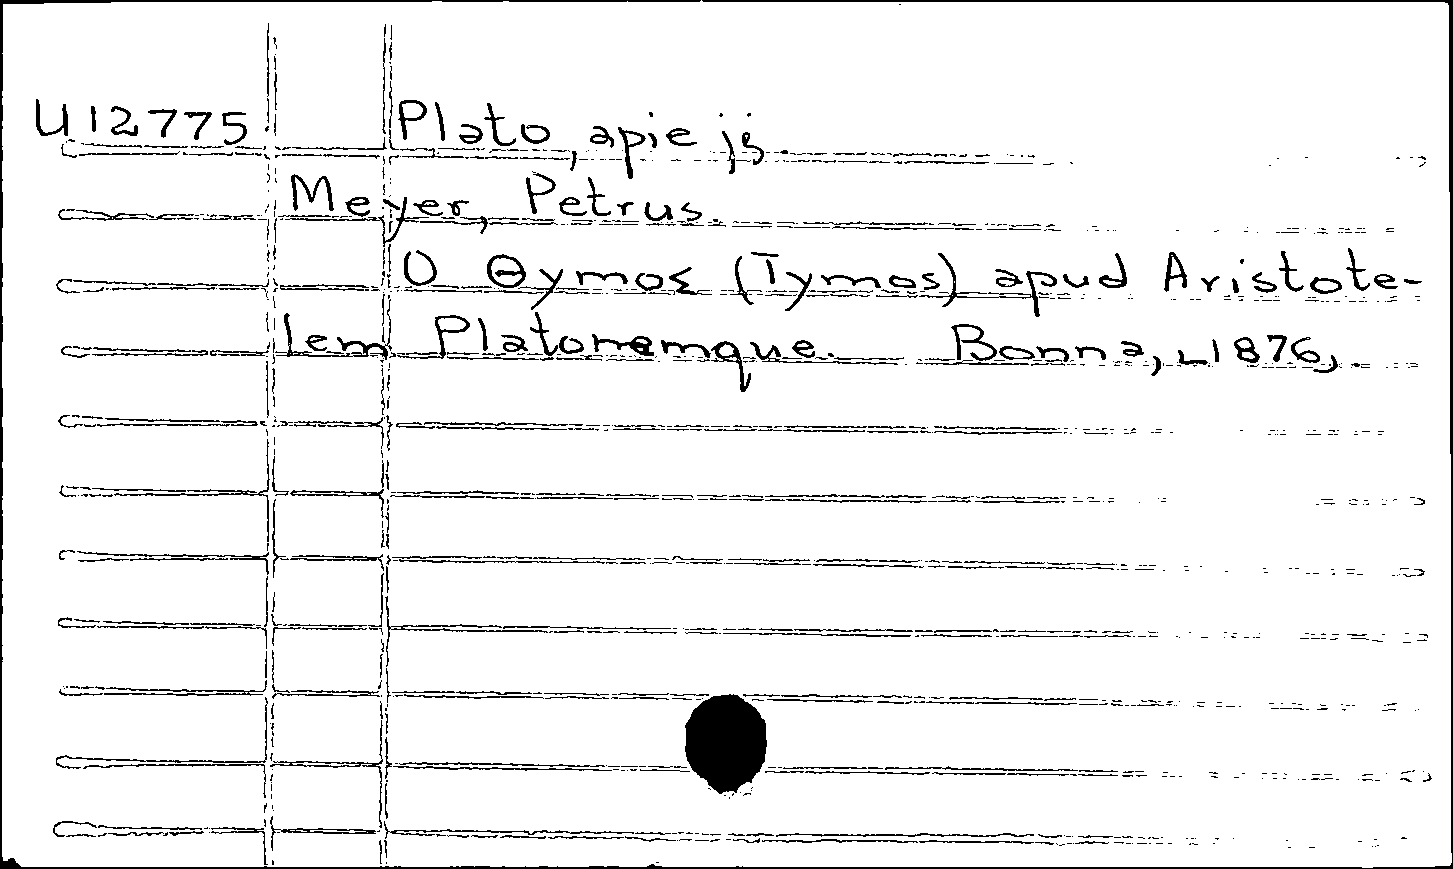 U12775 Plato, apie jį.
Meyer, Petrus.
O Θymos (Tymos) apud Aristote-
lem Platonemque. Bonna, 1876.